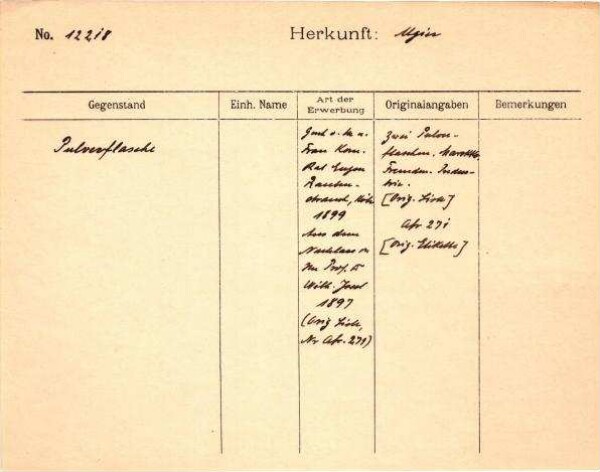 No. 12218
Herkunft: Algier
Gegenstand
Einh. Name
Art der Erwerbung
Originalangaben
Bemerkungen
Pulverflasche
Gesch. v. H. u.
Frau Kom.
Rat Eugen
Rauten-
strauch, Köln
1899
Aus dem
Nachlass v.
Hn Prof. Dr
Wilh. Joest
1897
(Orig. Liste,
Nr Afr. 271)
Zwei Pulver-
flaschen, Marokko,
Fremden-Indus-
trie.
[Orig. Liste]
Afr. 271
[Orig. Etikette]